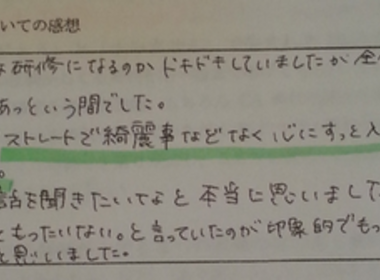 いての感想
な研修になるのかドキドキしていましたが全
あっという間でした。
ストレートで綺麗事などなく心にすっと入
。
話を聞きたいなと本当に思いました
ともったいない。と言っていたのが印象的でもっ
と思いました。